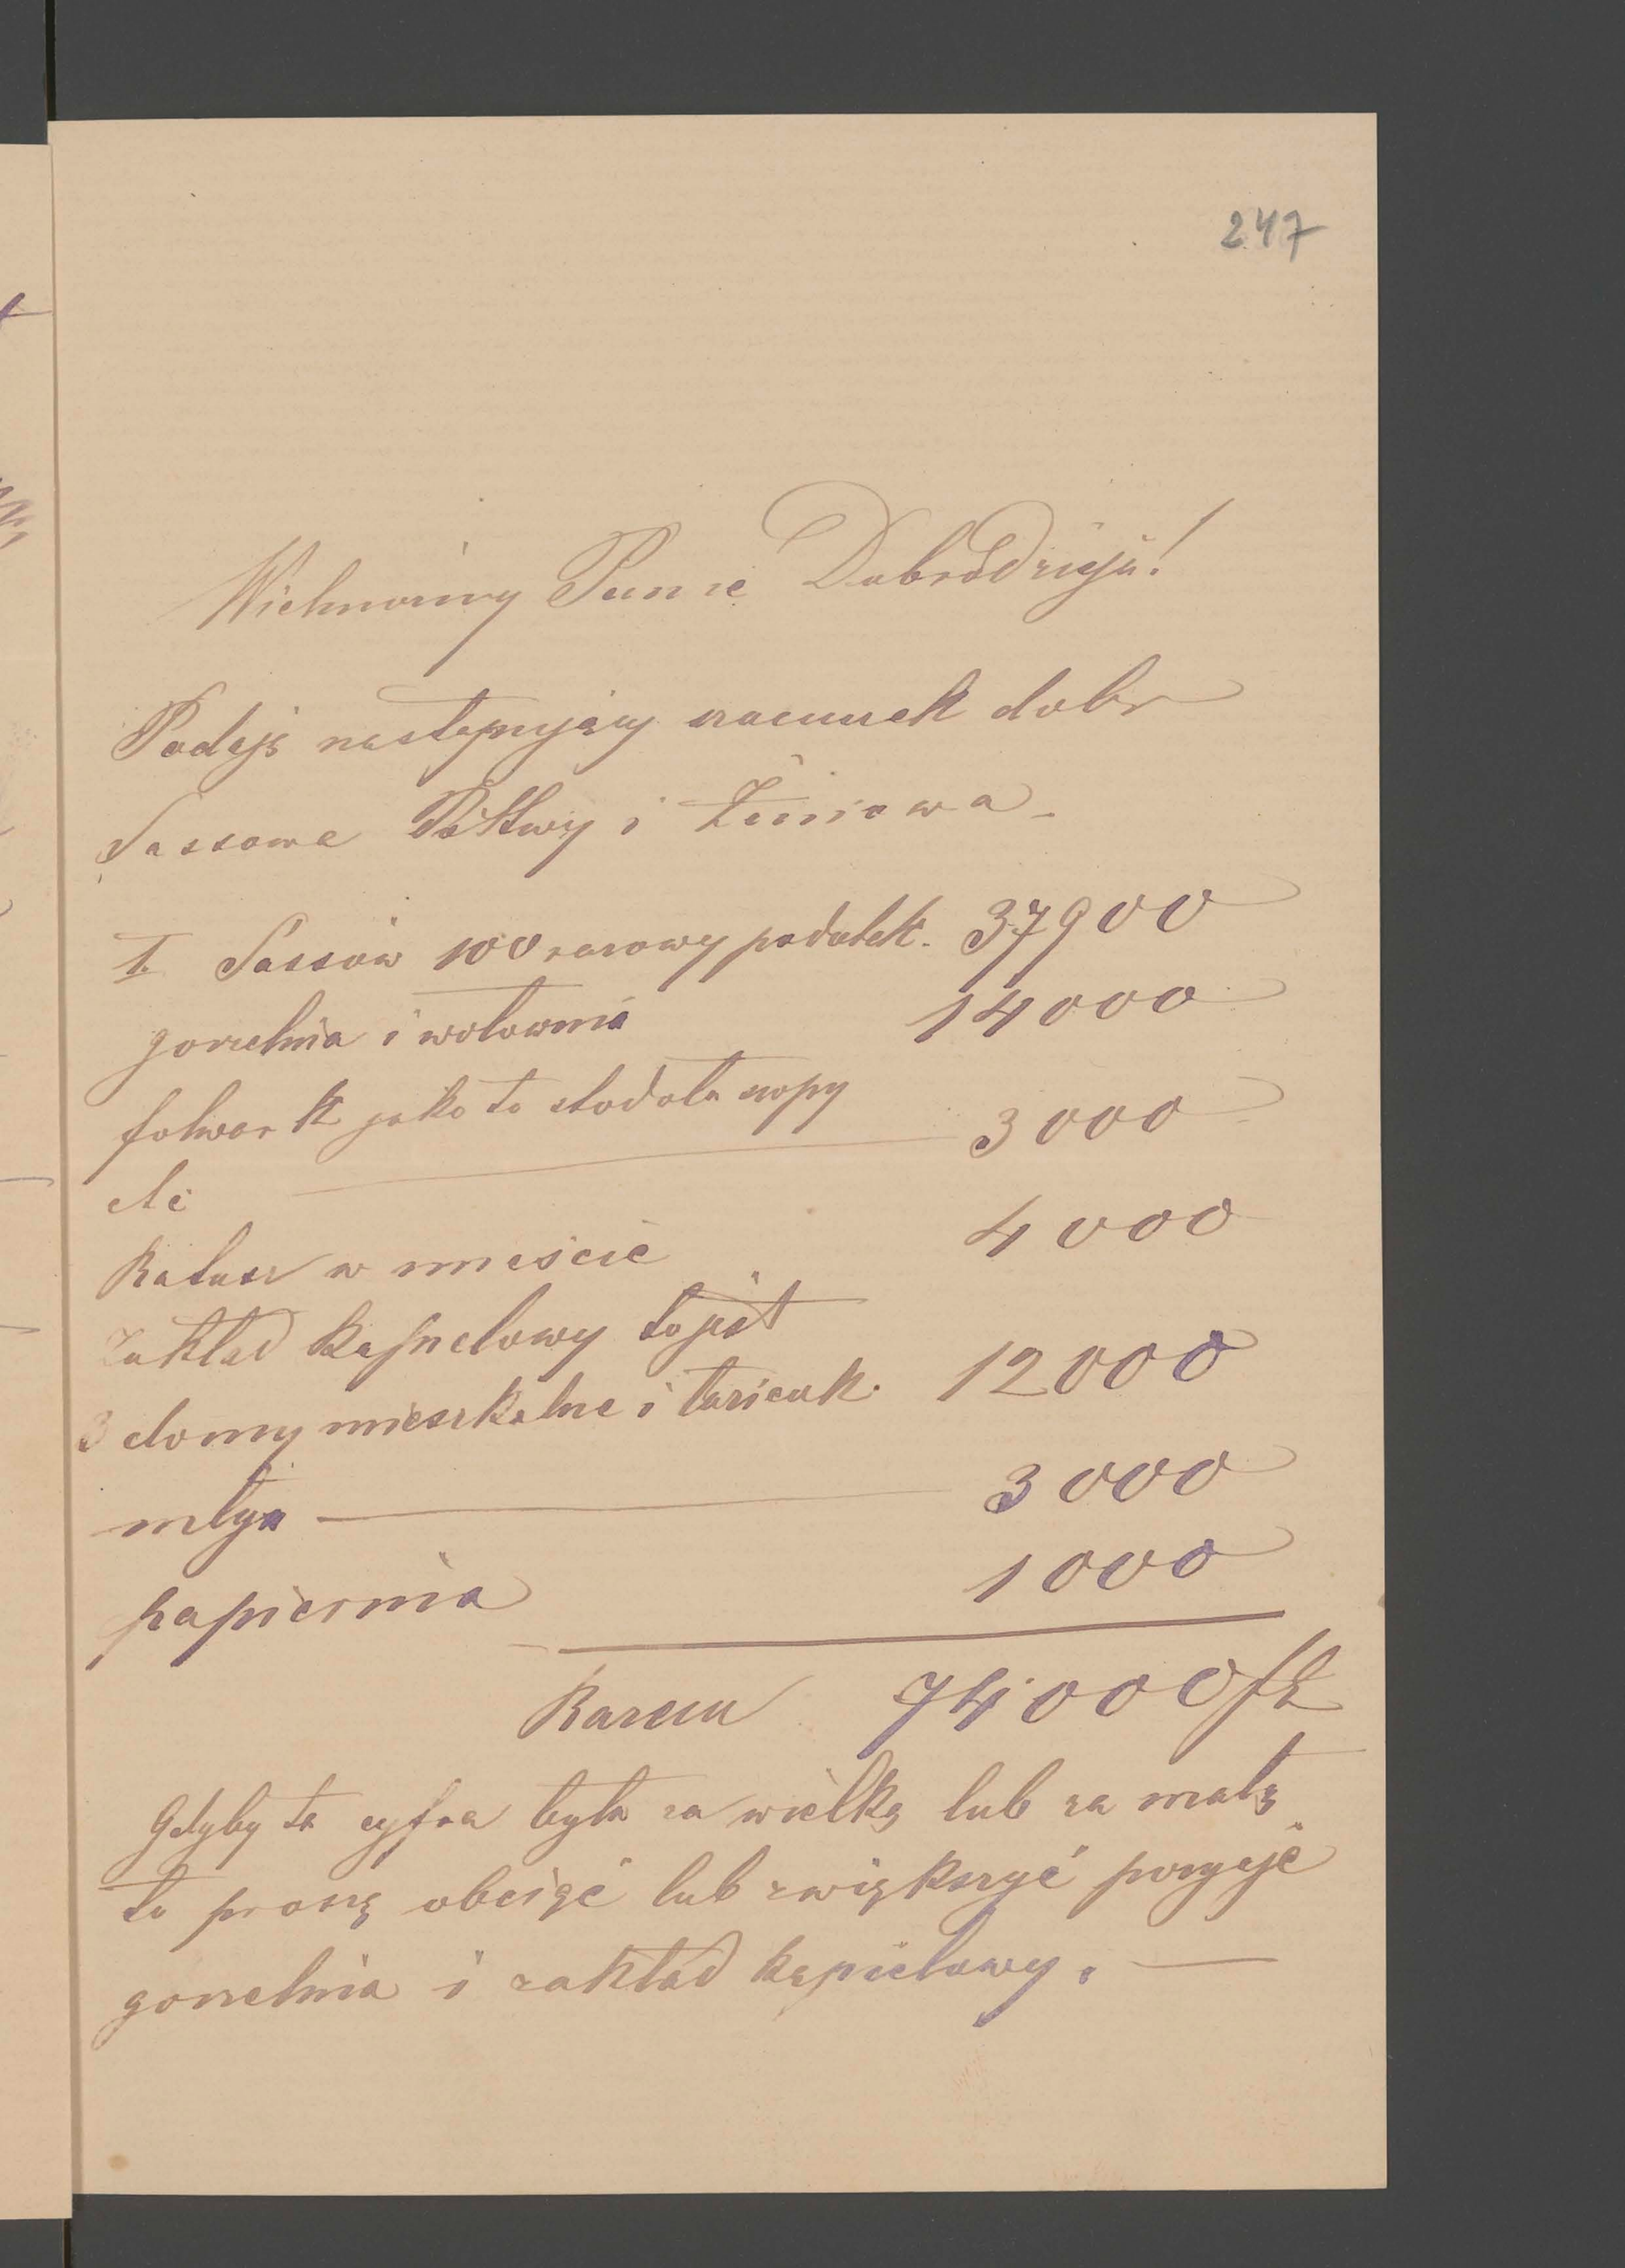 247
Wielmożny Panie Dobrodzieju!
Podaję następujący szacunek dobr
Sassowa i Żeniowa
I. Sassów 100 razowy podatek. 37900
gorzelnia i wołownia 14000
folwark jako to stodoła szopy
etc 3000
Ratusz w mieście 4000
Zakład kąpielowy to jest
3 domy mieszkalne i łazienk. 12000
młyn 3000
papiernia 1000
Razem 74000 fl
Gdyby ta cyfra była za wielką lub za małą
to proszę obciąć lub zwiększyć pozycje
gorzelnia i zakład kąpielowy. —